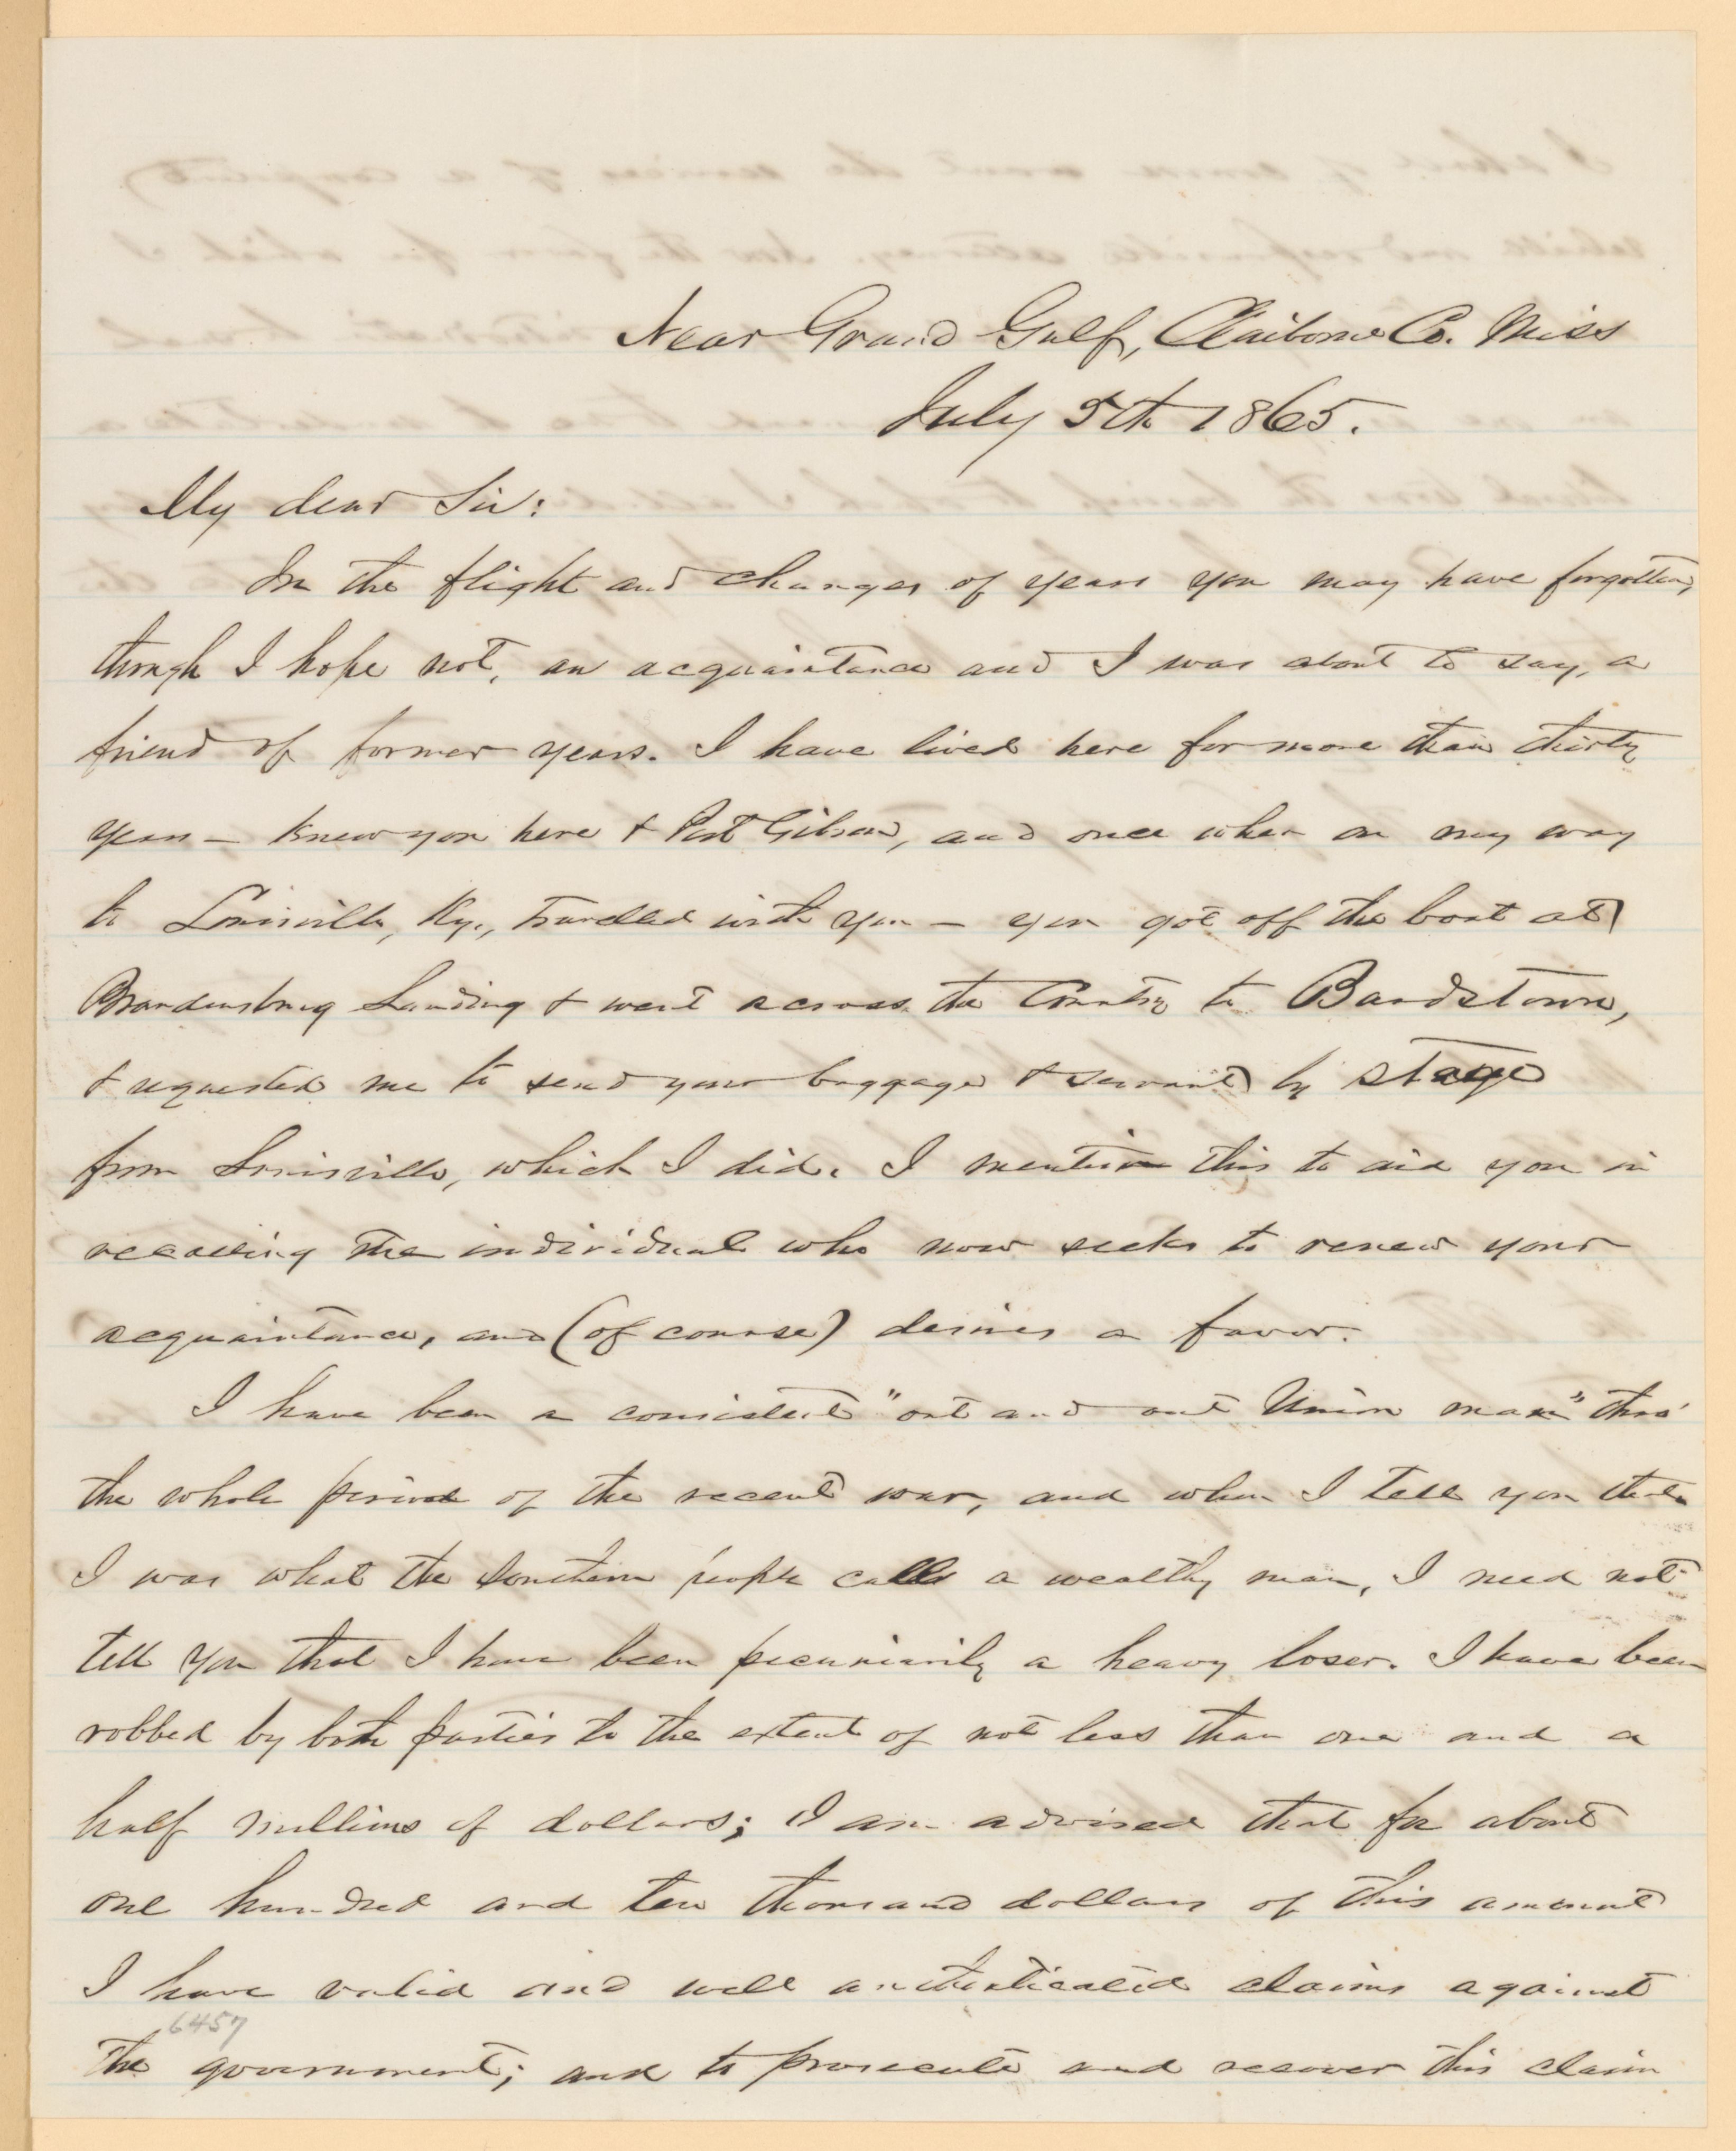 Near Grand Gulf, Claiborne Co. Miss
July 5th 1865.
My dear Sir:
In the flight and changes of years you may have forgotten,
though I hope not, an acquaintance and I was about to say, a
friend of former years. I have lived here for more than thirty
years – knew you here & Port Gibson, and once when on my way
to Louisville, Ky., travelled with you – you got off the boat at
Brandenburg Landing & went across the Country to Bardstown,
& requested me to send your baggage & servant by stage
from Louisville, which I did. I mention this to aid you in
recalling the individual who now seeks to renew your
acquaintance, and (of course) desires a favor.
I have been a consistent "out and out Union man" thro'
the whole period of the recent war, and when I tell you that
I was what the Southern people call a wealthy man, I need not
tell you that I have been pecuniarily a heavy loser. I have been
robbed by both parties to the extent of not less than one and a
half millions of dollars; I am advised that for about
one hundred and ten thousand dollars of this amount
I have valid and well authenticated claims against
6457
the government; and to prosecute and recover this claim